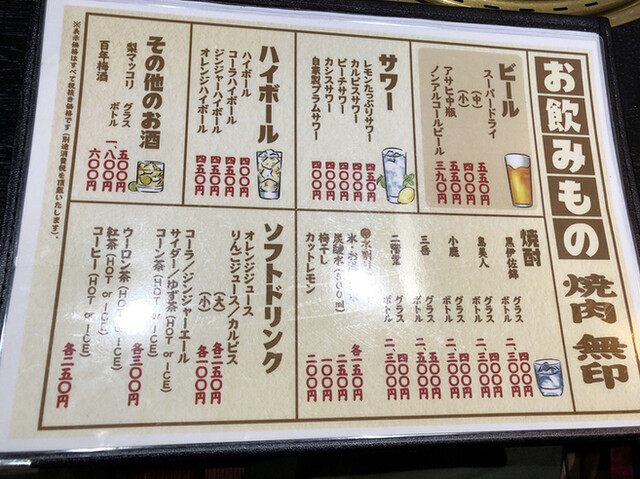 お飲みもの
焼肉 無印
ビール
スーパードライ
(中) 五五〇円
(小) 四〇〇円
アサヒ中瓶 五五〇円
ノンアルコールビール 三九〇円
サワー
レモンたっぷりサワー 四五〇円
カルピスサワー 四〇〇円
ピーチサワー 四〇〇円
カシスサワー 四〇〇円
自家製プラムサワー 四〇〇円
ハイボール
ハイボール 四〇〇円
コーラハイボール 四五〇円
ジンジャーハイボール 四五〇円
オレンジハイボール 四五〇円
その他のお酒
梨マッコリ グラス 五〇〇円
ボトル 一、八〇〇円
百年梅酒 六〇〇円
焼酎
黒伊佐錦 グラス 四〇〇円
ボトル 二、三〇〇円
島美人 グラス 四〇〇円
ボトル 二、三〇〇円
小鹿 グラス 四〇〇円
ボトル 二、三〇〇円
三岳 グラス 五〇〇円
ボトル 二、五〇〇円
二階堂 グラス 四〇〇円
ボトル 二、三〇〇円
氷・お湯 各一五〇円
炭酸水(500ml) 二五〇円
梅干し 一〇〇円
カットレモン 二〇〇円
ソフトドリンク
オレンジジュース
りんごジュース/カルピス
(大) 各二五〇円
(小) 各一〇〇円
コーラ/ジンジャーエール
サイダー/ゆず茶(HOT or ICE)
コーン茶(HOT or ICE)
各三〇〇円
ウーロン茶(HOT or ICE)
紅茶(HOT or ICE)
コーヒー(HOT or ICE)
各二五〇円
※表示価格はすべて税抜き価格です(別途消費税を頂戴いたします)。